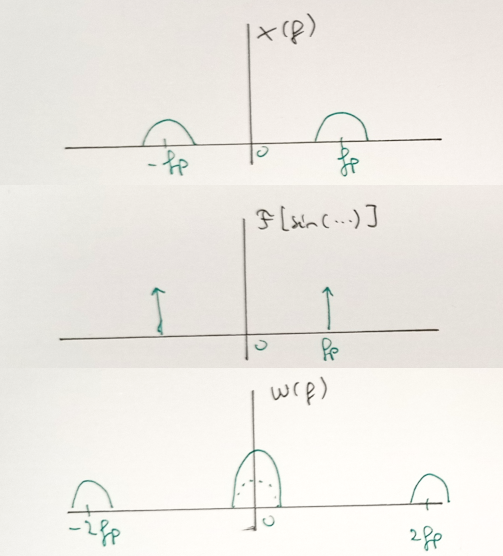 X(f)
-fp 0 fp
F[sin(...)]
0 fp
W(f)
-2fp 0 2fp